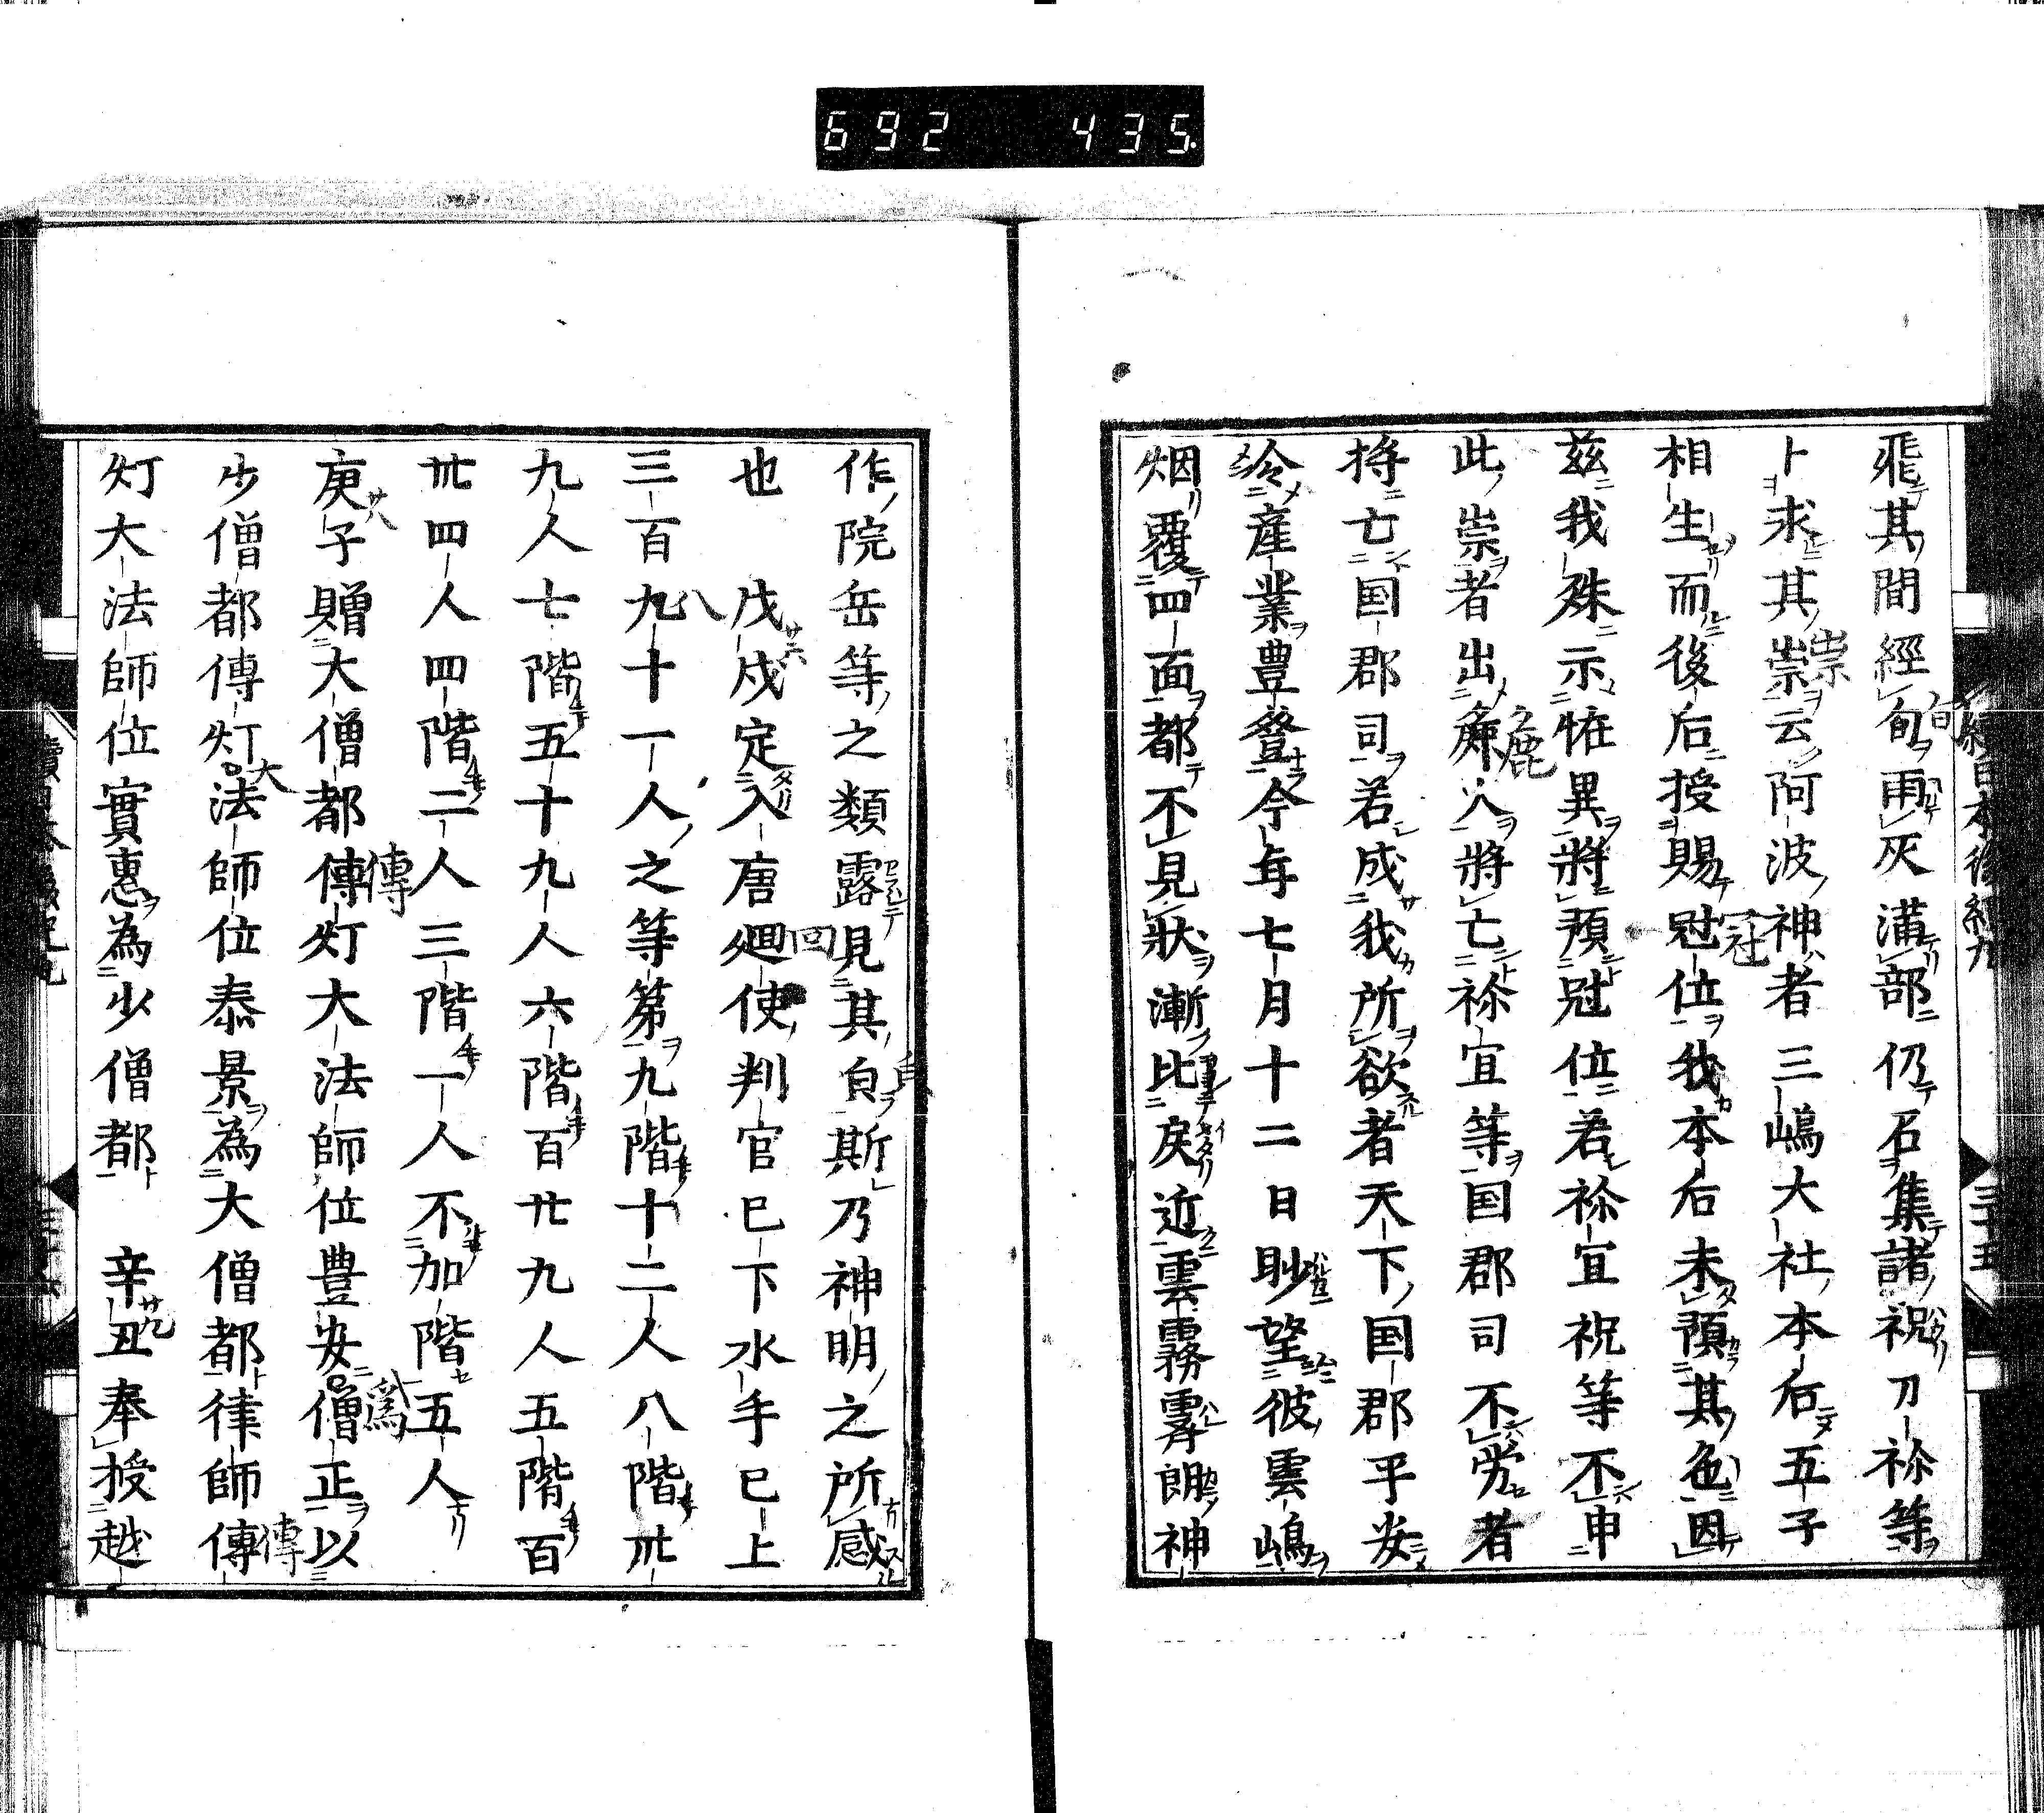 692 435
飛其間經旬雨灰満部仍石集諸祝刀祢等
卜求其祟云阿波神者三嶋大社本后五子
相生而後后授賜冠位我本后未預其色因
茲我殊示恠異將預冠位若祢宜祝等不申
此祟者出麁火將亡祢宜等国郡司不労者
将亡国郡司若成我所欲者天下国郡平安
令産業豊登今年七月十二日眇望彼雲嶋
烟覆四面都不見狀漸比戻近雲霧霽朗神
作院岳等之類露見其貞斯乃神明之所感
也 戊戌定入唐廻使判官已下水手已上
三百九十一人之等第九階十二人八階卅
九人七階五十九人六階百廿九人五階百
卅四人四階二人三階一人不加階五人
庚子贈大僧都傳灯大法師位豊安僧正以
少僧都傳灯法師位泰景為大僧都律師傳
灯大法師位實惠為少僧都 辛丑奉授越